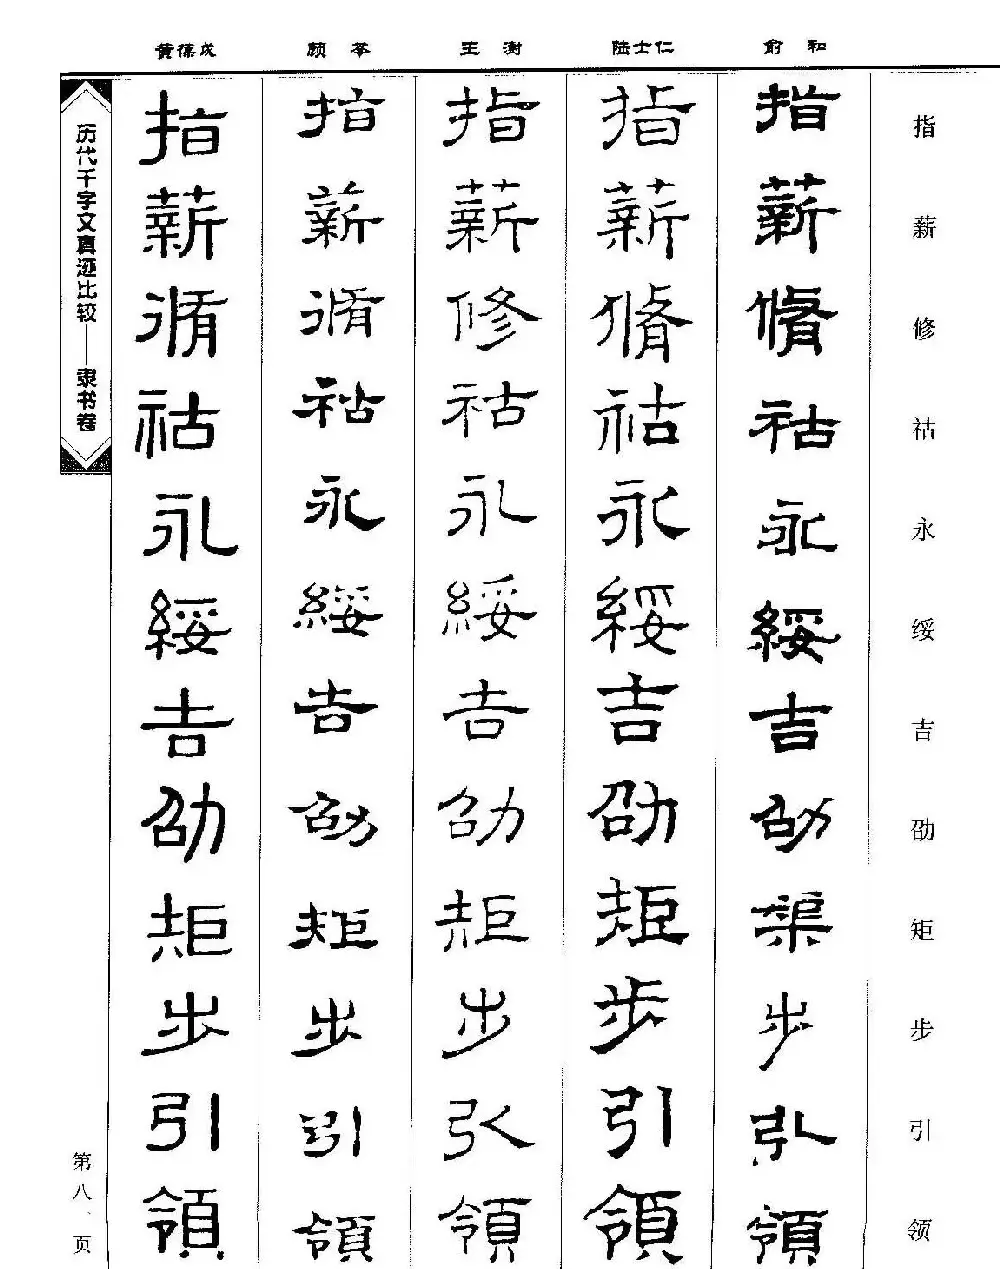 黄葆戉 顾苓 王澍 陆士仁 俞和
历代千字文真迹比较——隶书卷
指薪修祜永绥吉劭矩步引领
指薪脩祜永綏吉劭渠步引領
指薪脩祜永綏吉劭矩步引領
指薪修祜永綏吉劭矩步引領
指薪脩祜永綏吉劭矩步引領
指薪脩祜永綏吉劭矩步引領
第八、页